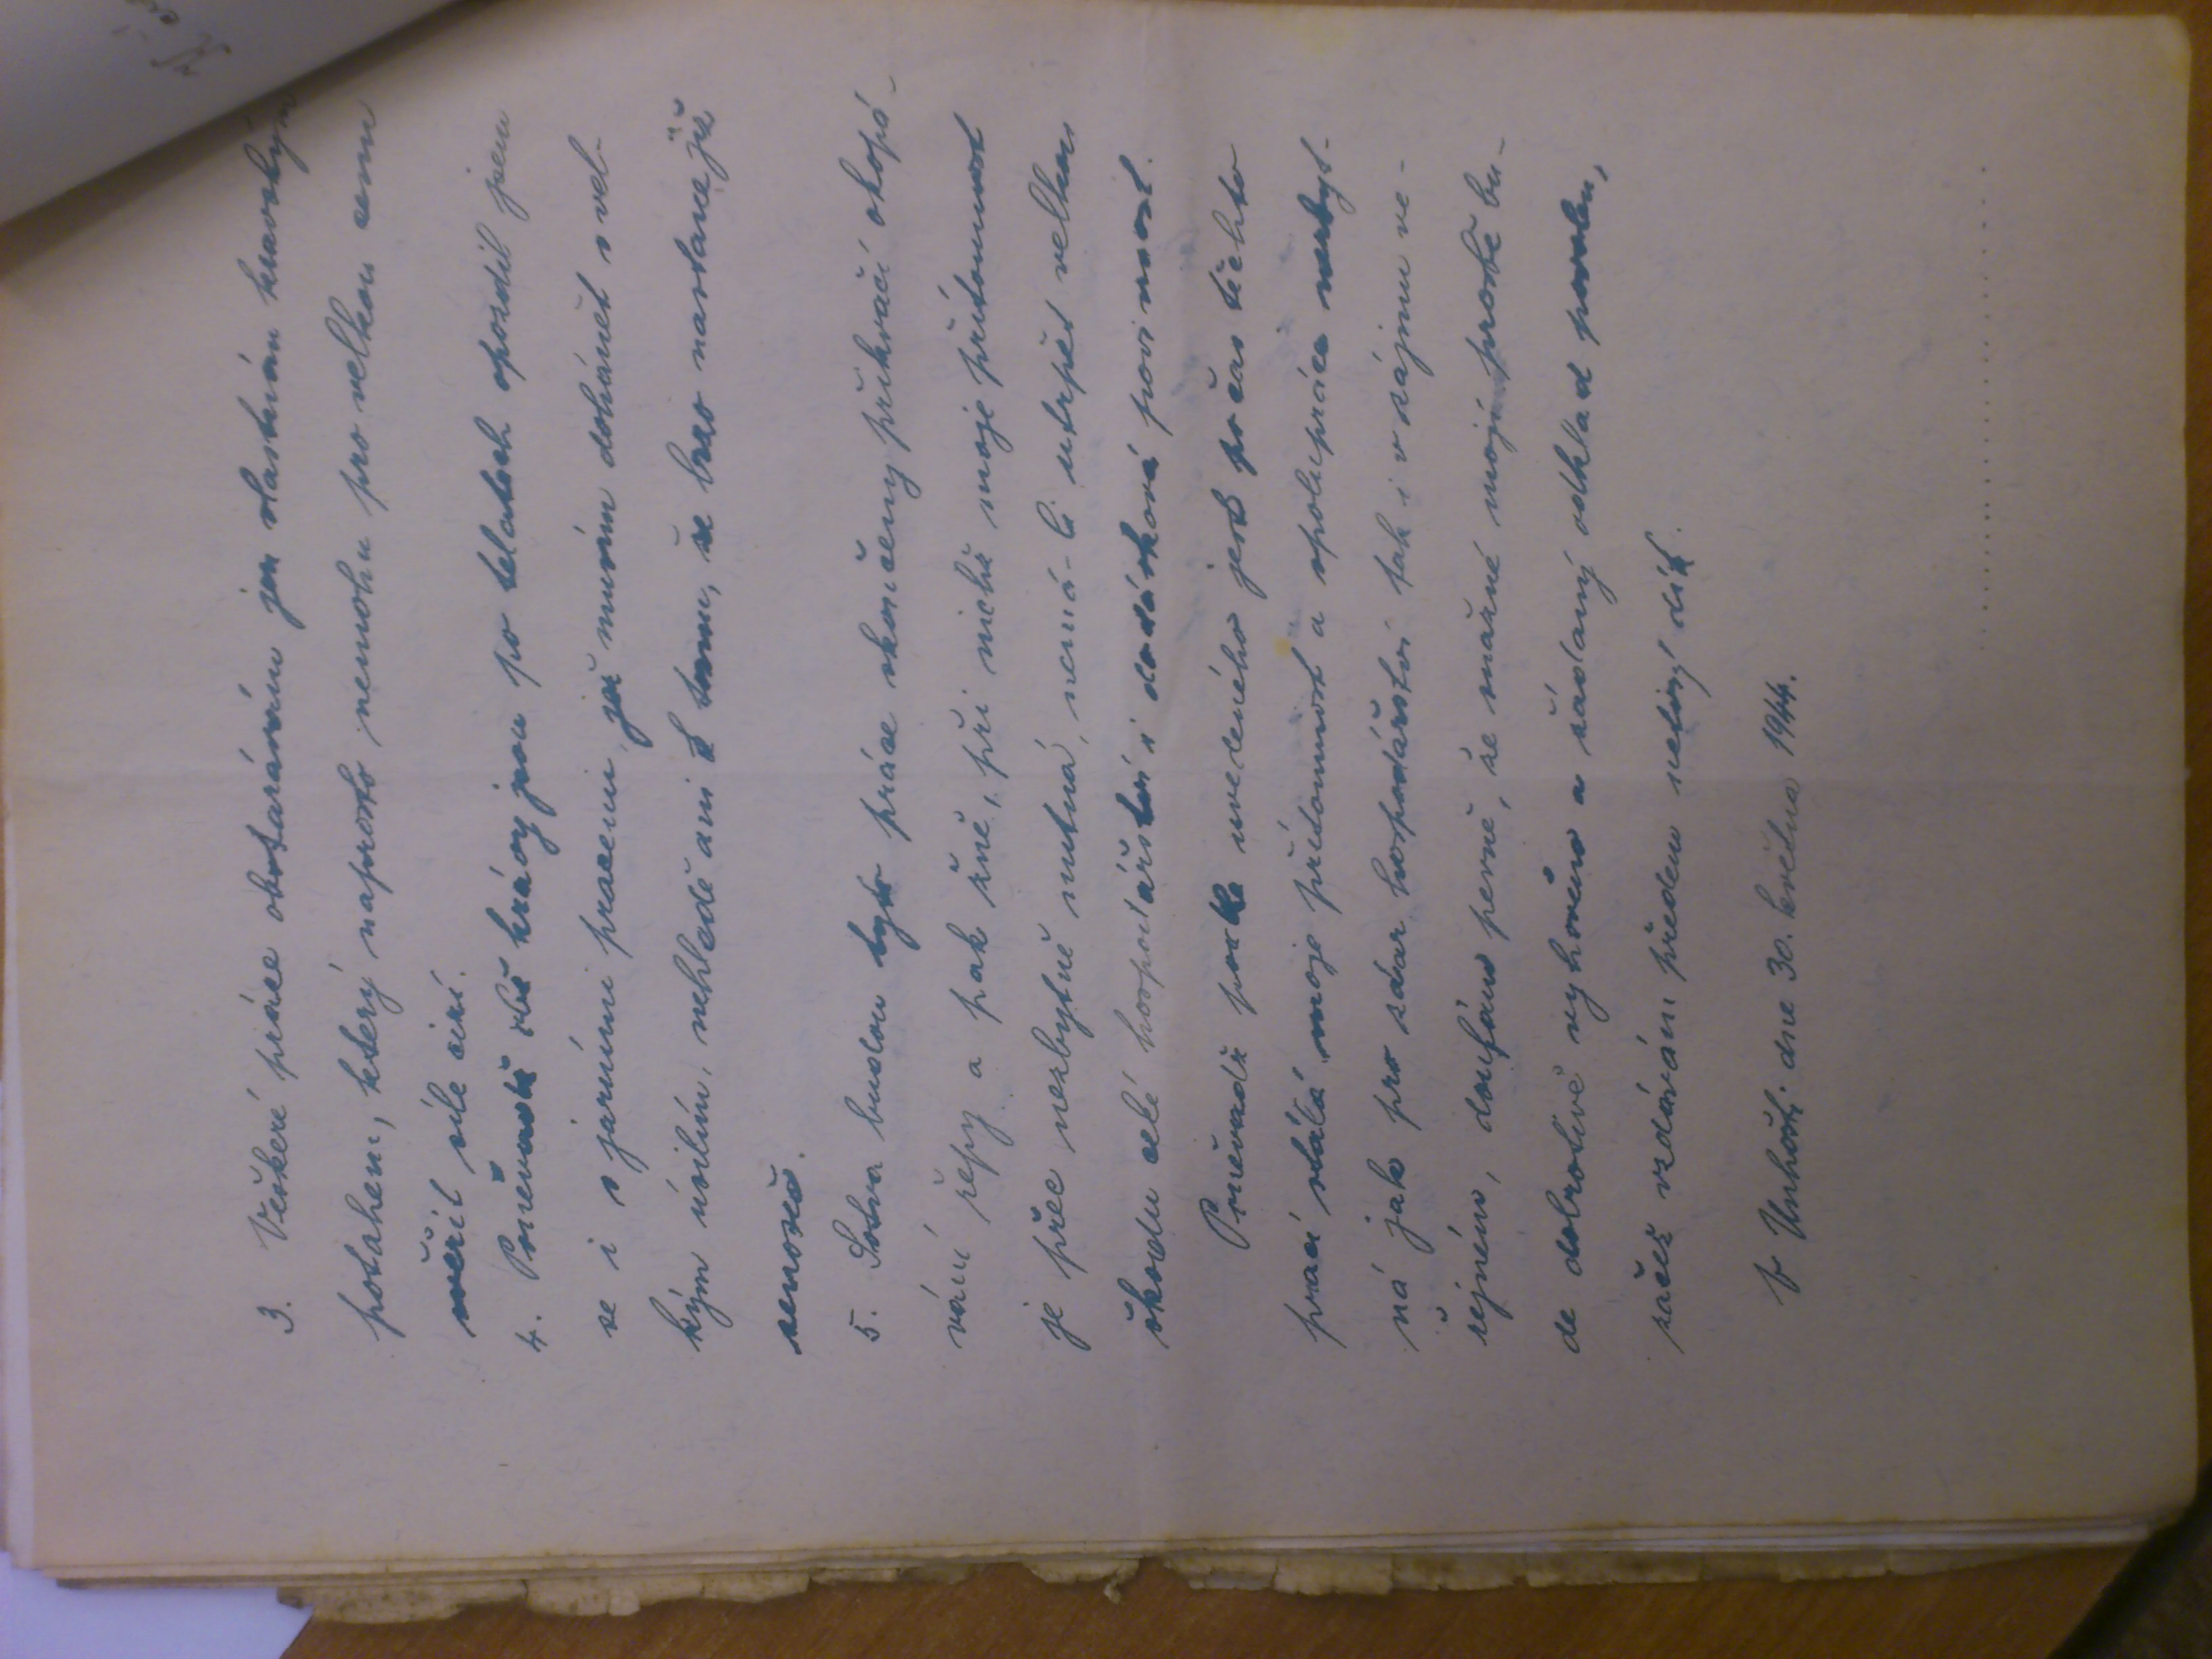 3. Veškeré práce obstarávám jen vlastním kravským
potahem, který naprosto nemohu pro velkou cenu
svěřit síle cizí.
4. Poněvadž obě krávy jsou po telatech opozdil jsem
se i s jarními pracemi, jež musím dohánět s vel-
kým úsilím, nehledě ani k tomu, že brzo nastane již
senoseč.
5. Sotva budou tyto práce skončeny přikvačí okopá-
vání řepy a pak žně, při nichž moje přítomnost
je přec nezbytně nutná, nemá-li utrpět velkou
škodu celé hospodářství i dodávková povinnost.
Poněvadž podle uvedeného jest po čas těchto
prací stálá moje přítomnost a spolupráce nezbyt-
ná jak pro zdar hospodářství tak i v zájmu ve-
řejném, doufám pevně, že snažné moji prosbě bu-
de dobrotivě vyhověno a žádaný odklad povolen,
začež vzdávám předem uctivý dík.
V Unhošti dne 30. května 1944.